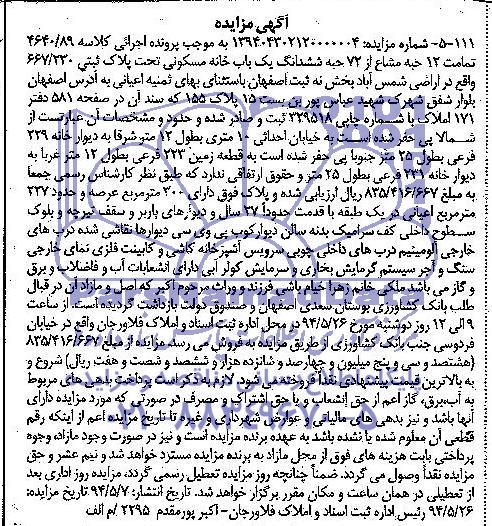 آگهی مزایده
۱۱۱-۵- شماره مزایده: ۱۳۹۴۰۴۳۰۲۱۲۰۰۰۰۰۰۴ به موجب پرونده اجرائی کلاسه ۴۶۴۰/۸۹
تمامت ۱۲ حبه مشاع از ۷۲ حبه ششدانگ یک باب خانه مسکونی تحت پلاک ثبتی ۶۶۷/۲۳۰
واقع در اراضی شمس آباد بخش نه ثبت اصفهان باستثنای بهای ثمنیه اعیانی به آدرس اصفهان
بلوار شفق شهرک شهید عباس پور بن بست پلاک ۱۵۵ که سند آن در صفحه ۵۸۱ دفتر
۱۷۱ املاک با شماره چاپی ۲۲۹۵۱۸ ثبت و صادر شده و حدود و مشخصات آن عبارتست از
شمالا پی حفر شده است به خیابان احداثی ۱۰ متری بطول ۱۲ متر شرقا به دیوار خانه ۲۲۹
فرعی بطول ۲۵ متر جنوبا پی حفر شده است به قطعه زمین ۲۲۳ فرعی بطول ۱۲ متر غربا به
دیوار خانه ۲۳۱ فرعی بطول ۲۵ متر و حقوق ارتفاقی ندارد که طبق نظر کارشناس رسمی جمعا
به مبلغ ۸۳۵/۴۱۶/۶۶۷ ریال ارزیابی شده و پلاک فوق دارای ۳۰۰ مترمربع عرصه و حدود ۲۲۷
مترمربع اعیانی در یک طبقه با قدمت حدوداً ۲۷ سال و دیوارهای باربر و سقف تیرچه و بلوک
سطوح داخلی کف سرامیک بدنه سالن دیوارکوب پی وی سی دیوارها نقاشی شده درب های
خارجی آلومینیم درب های داخلی چوبی سرویس آشپزخانه کاشی و کابینت فلزی نمای خارجی
سنگ و آجر سیستم گرمایش بخاری و سرمایش کولر آبی دارای انشعابات آب و فاضلاب و برق
و گاز می باشد ملکی خانم زهرا خیام باشی فرزند و وراث مرحوم اکبر که اصل و مازاد آن در قبال
طلب بانک کشاورزی بوستان سعدی اصفهان و صندوق دولت بازداشت گردیده است. از ساعت
۹ الی ۱۲ روز دوشنبه مورخ ۹۴/۵/۲۶ در محل اداره ثبت اسناد و املاک فلاورجان واقع در خیابان
فردوسی جنب بانک کشاورزی از طریق مزایده به فروش می رسد. مزایده از مبلغ ۸۳۵/۴۱۶/۶۶۷
(هشتصد و سی و پنج میلیون و چهارصد و شانزده هزار و ششصد و شصت و هفت ریال) شروع و
به بالاترین قیمت پیشنهادی نقداً فروخته می شود. لازم به ذکر است پرداخت بدهی های مربوط
به آب،برق، گاز اعم از حق انشعاب و یا حق اشتراک و مصرف در صورتی که مورد مزایده دارای
آنها باشد و نیز بدهی های مالیاتی و عوارض شهرداری و غیره تا تاریخ مزایده اعم از اینکه رقم
قطعی آن معلوم شده یا نشده باشد به عهده برنده مزایده است و نیز در صورت وجود مازاد، وجوه
پرداختی بابت هزینه های فوق از محل مازاد به برنده مزایده مسترد خواهد شد و نیم عشر و حق
مزایده نقداً وصول می گردد. ضمناً چنانچه روز مزایده تعطیل رسمی گردد، مزایده روز اداری بعد
از تعطیلی در همان ساعت و مکان مقرر برگزار خواهد شد. تاریخ انتشار: ۹۴/۵/۷ تاریخ مزایده:
۹۴/۵/۲۶ رئیس اداره ثبت اسناد و املاک فلاورجان- اکبر پورمقدم ۲۲۹۵ /م الف